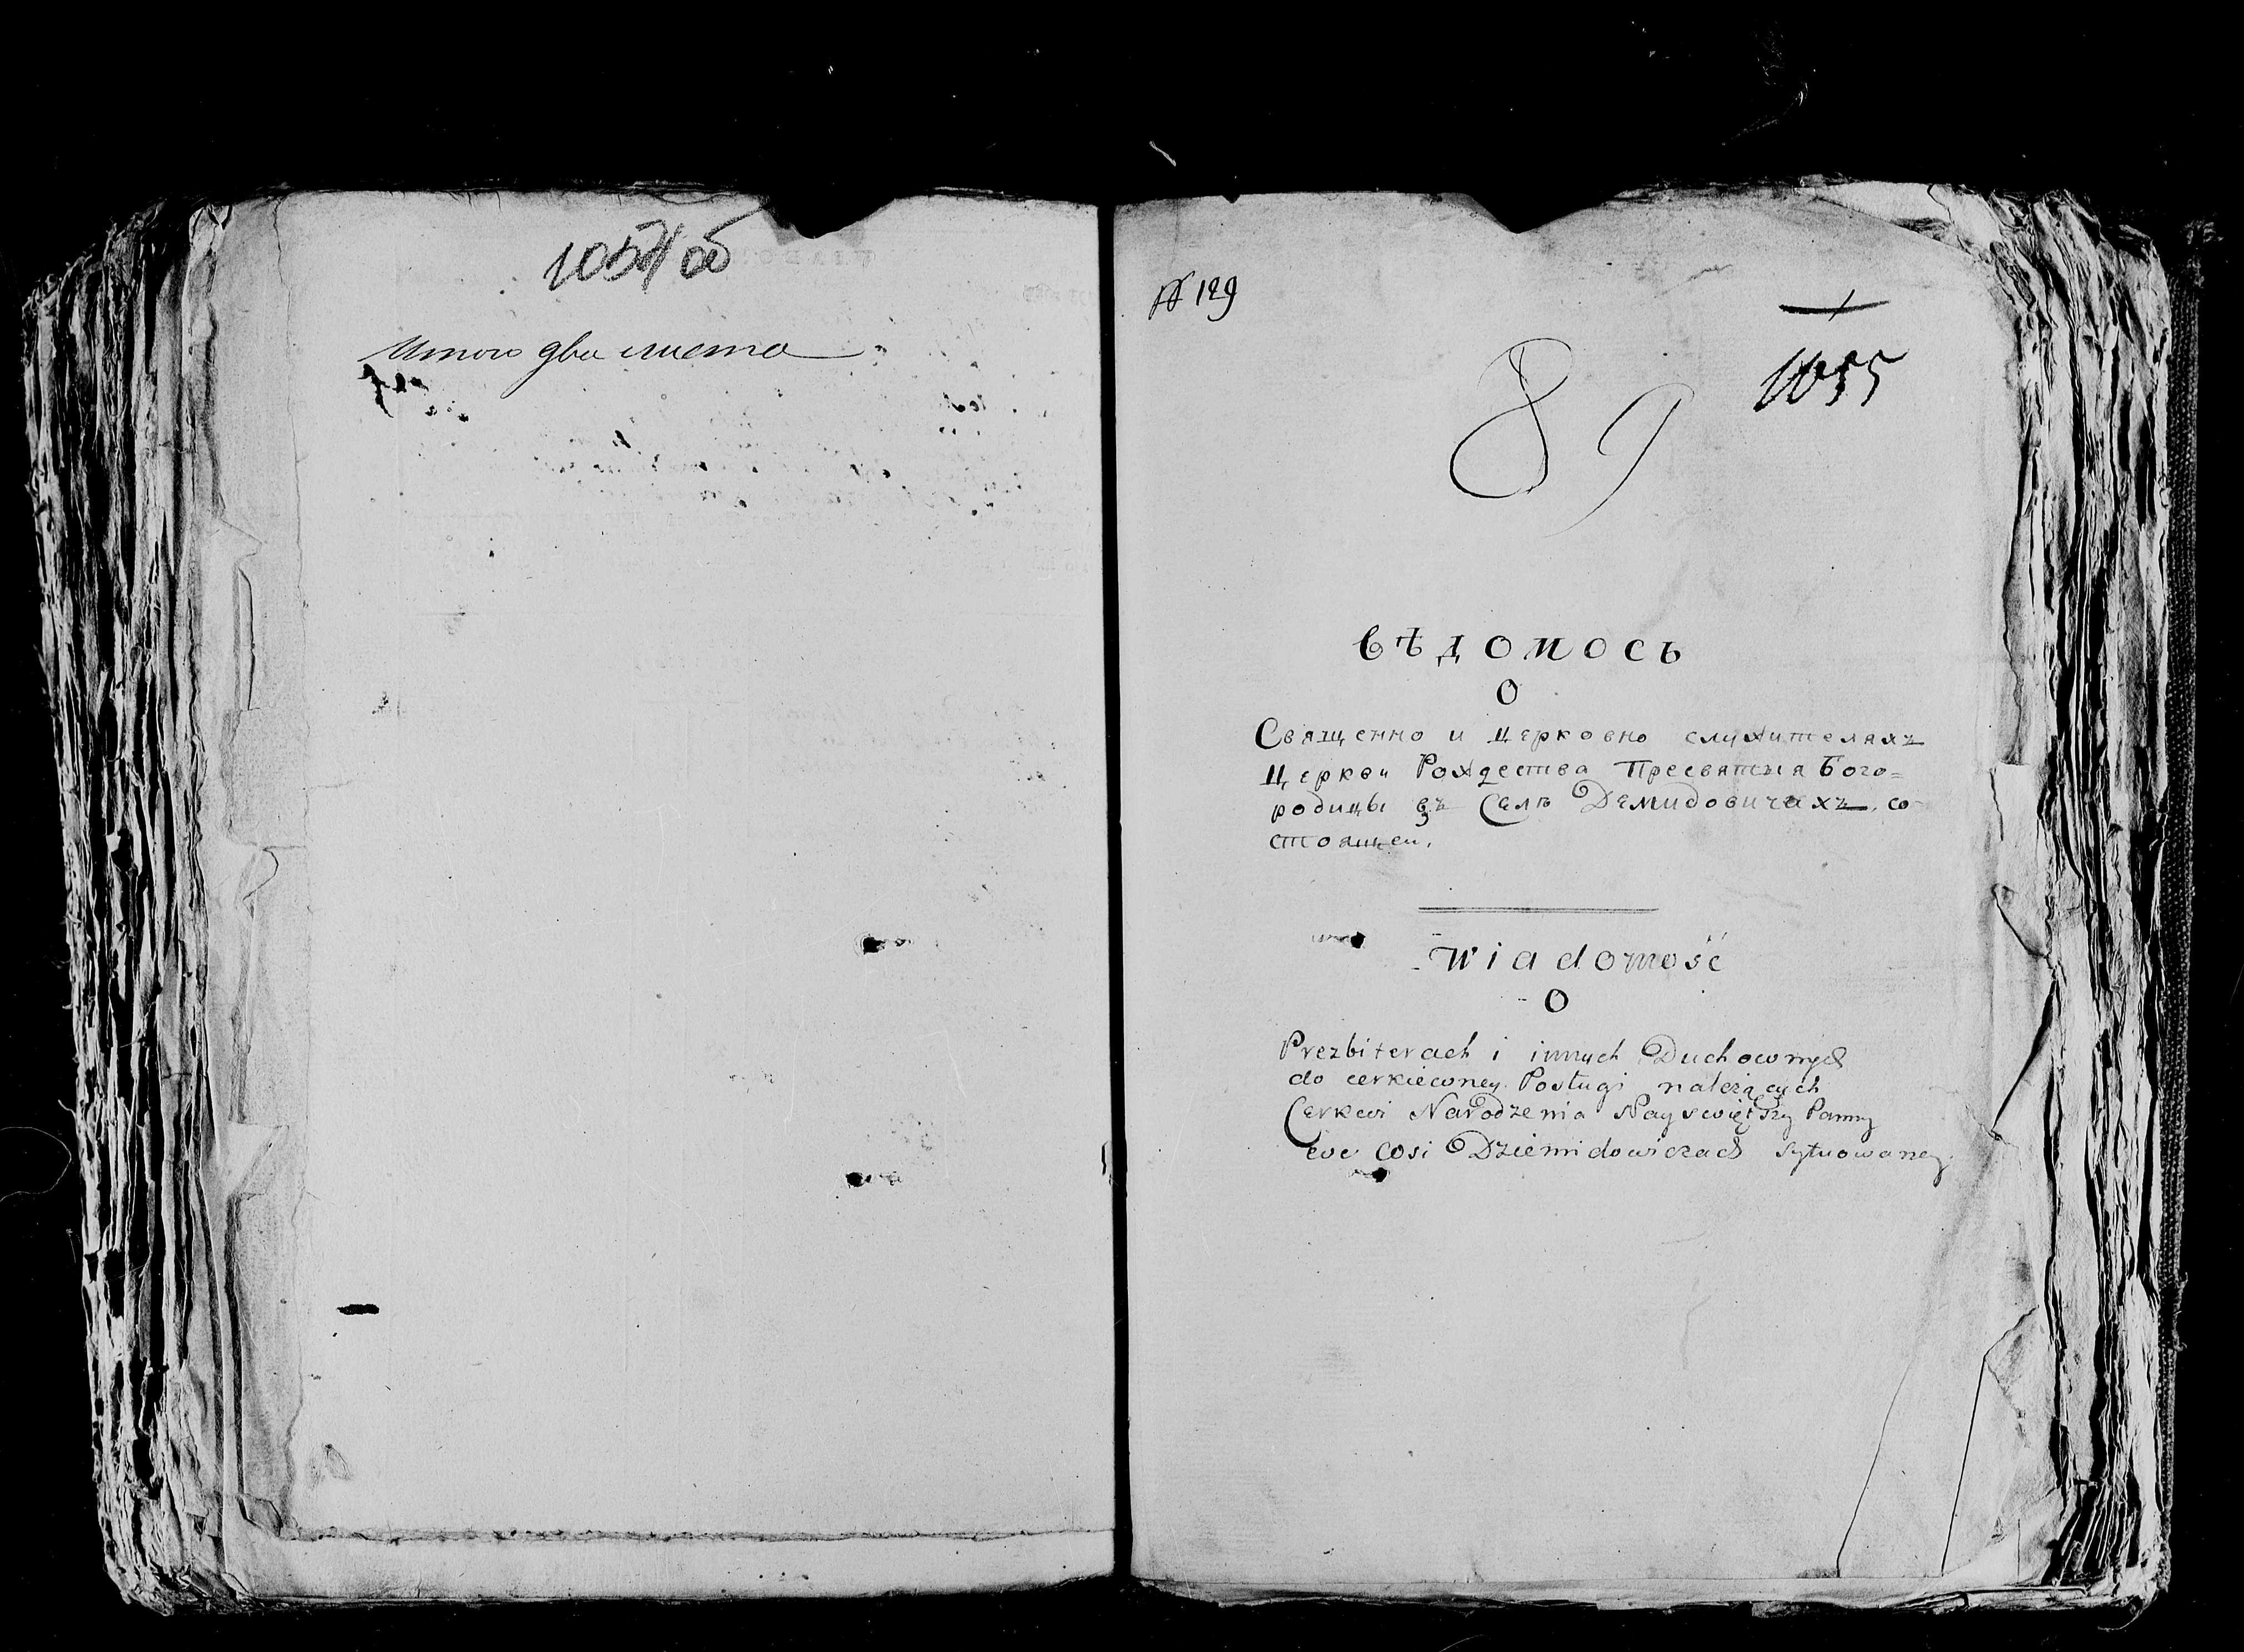 1054 об
Итого два листа
№ 129
1055
89
ВѢДОМОСЬ
О
Священно и Церковно служителяхъ
Церкви Рождества Пресвятыя Бого=
родицы въ Селѣ Демидовичахъ со
стоящей.
Wiadomość
O
Prezbiterach i innych Duchownych
do cerkiewney Posługi należących
Cerkwi Narodzenia Nayswiętszy Panny
we wsi Dziemidowiczach sytuowaney.